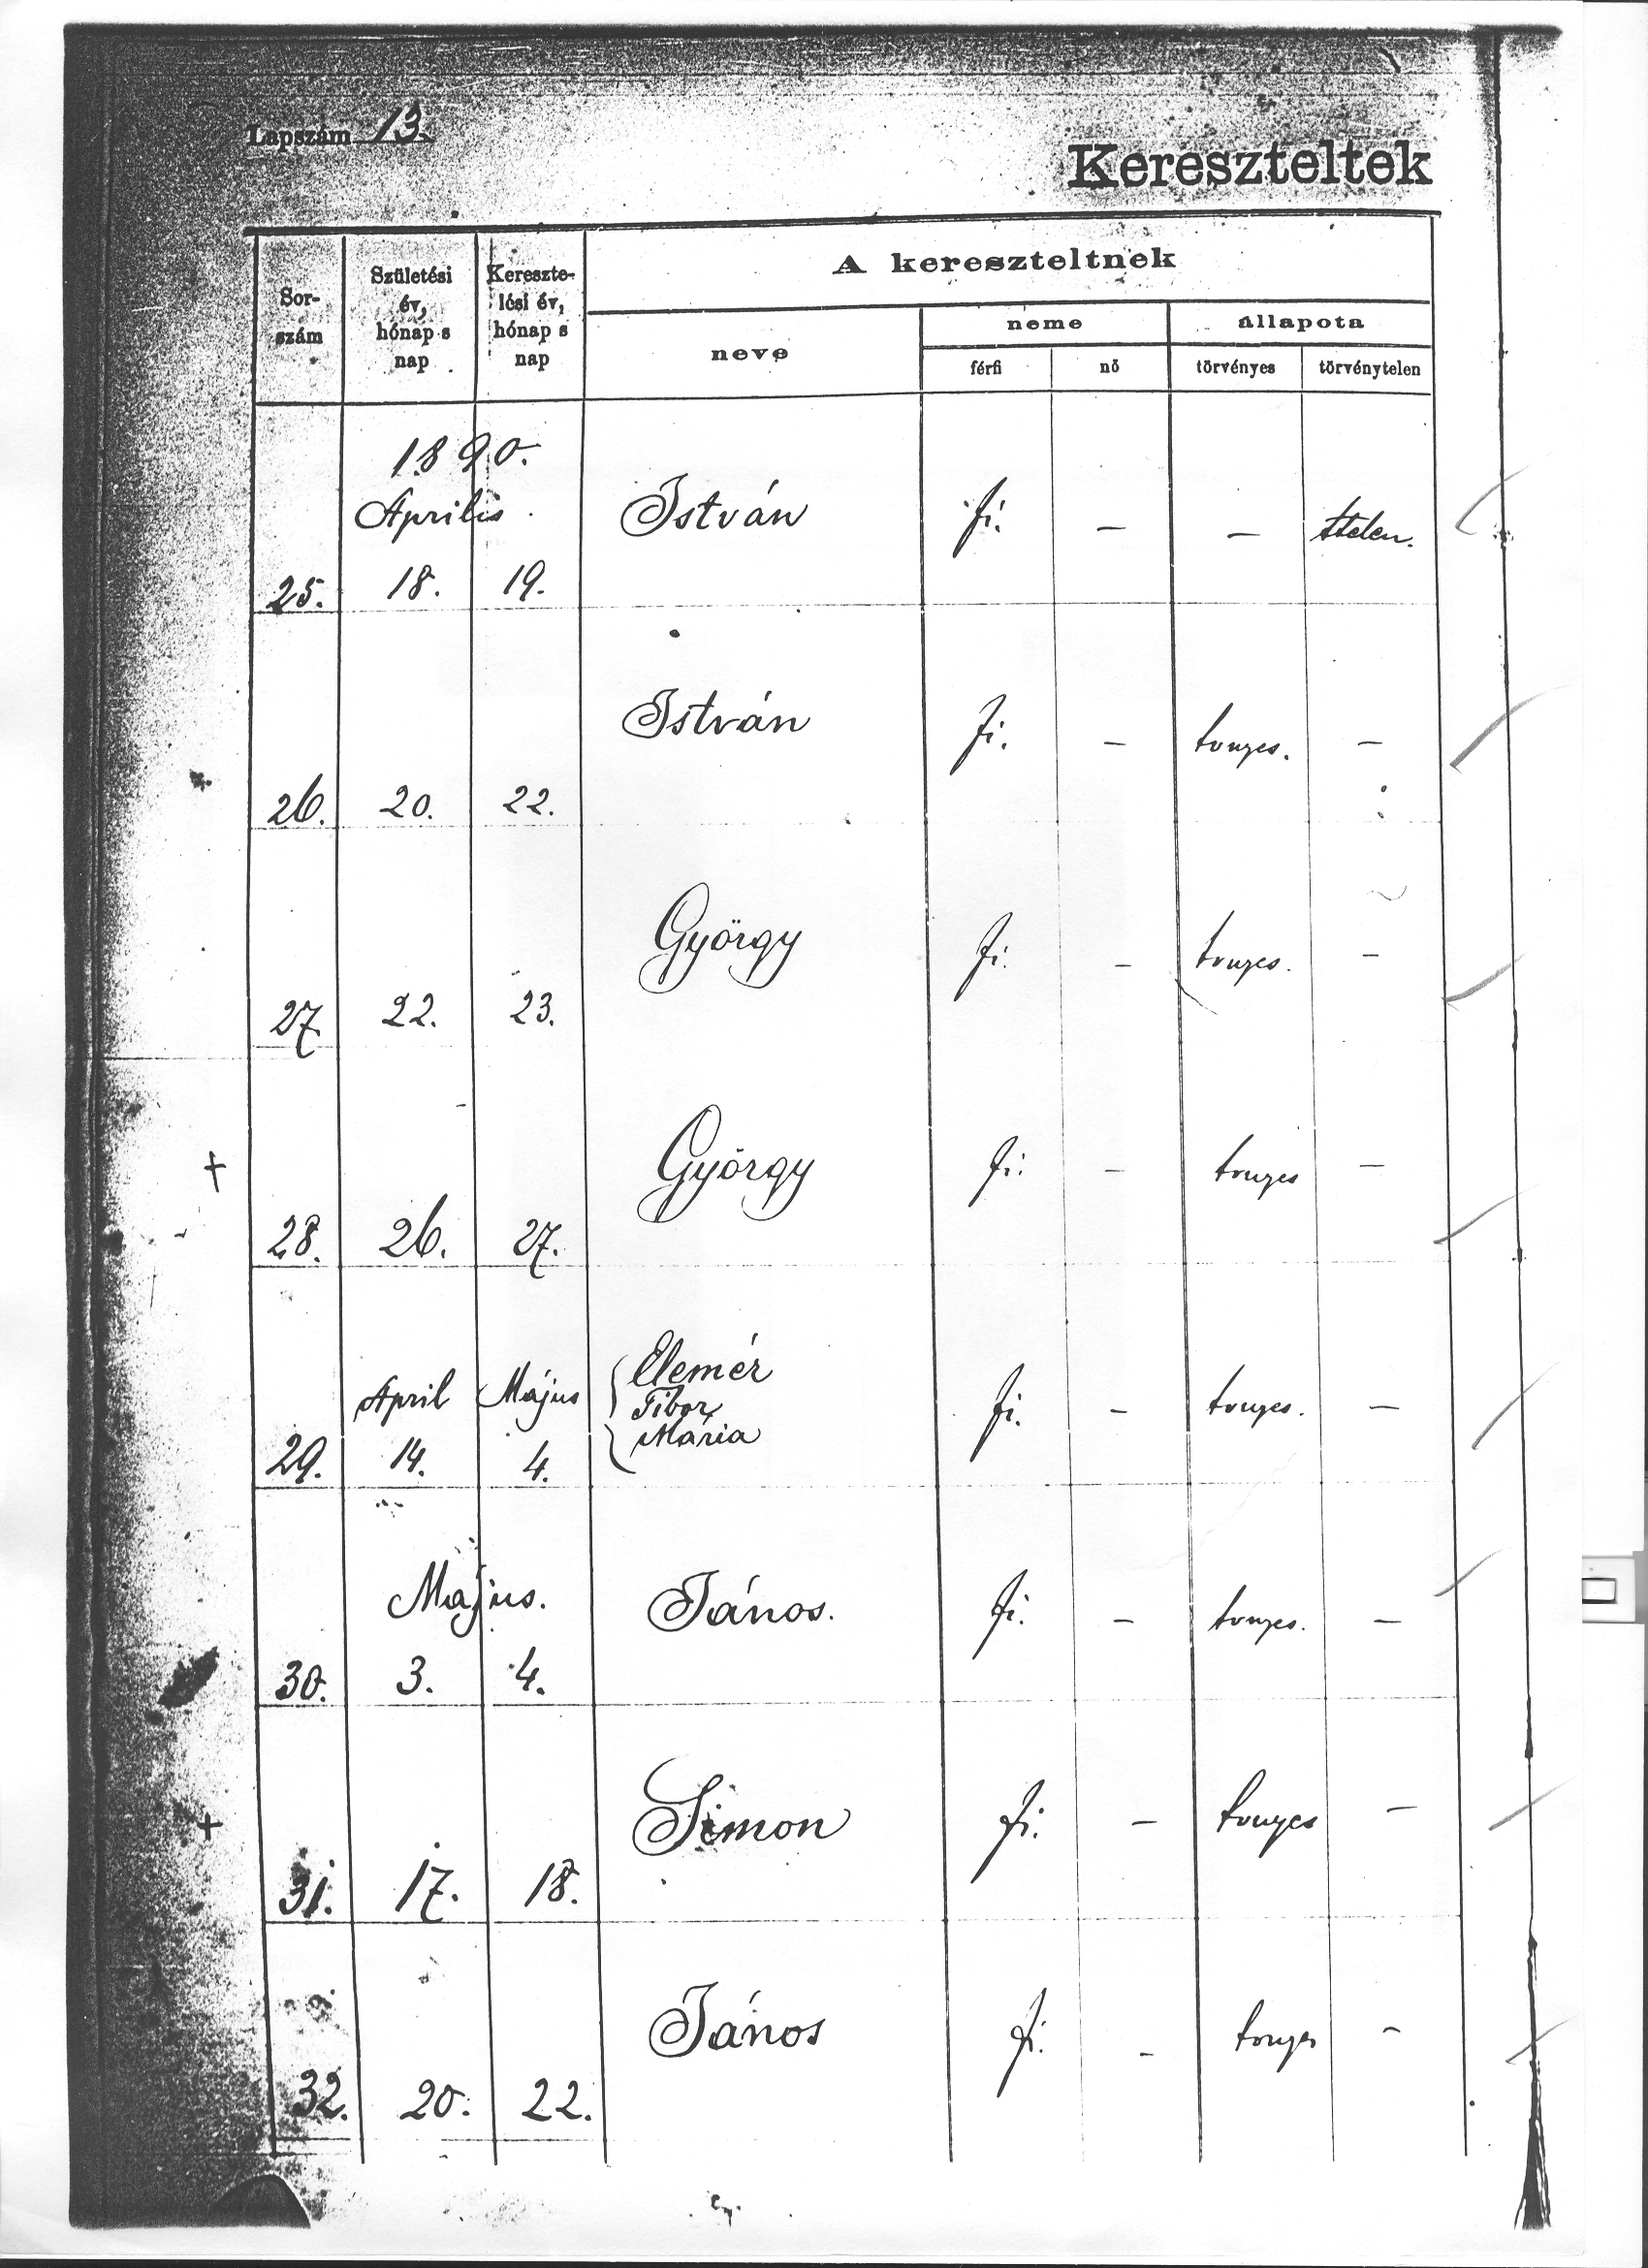 Lapszám 13.
Kereszteltek
Sor-
szám
Születési
év,
hónap s
nap
Kereszte-
lési év,
hónap s
nap
A kereszteltnek
neve
neme
állapota
férfi
nő
törvényes
törvénytelen
1890.
Aprilis
25. 18. 19. István fi. — — ttelen.
26. 20. 22. István fi. — tvnyes. —
27. 22. 23. György fi. — tvnyes. —
28. 26. 27. György fi. — tvnyes —
April Május Elemér
Tibor
Mária
29. 14. 4. fi. — tvnyes. —
Május.
30. 3. 4. János. fi. — tvnyes. —
31. 17. 18. Simon fi. — tvnyes —
32. 20. 22. János fi. — tvnyes —